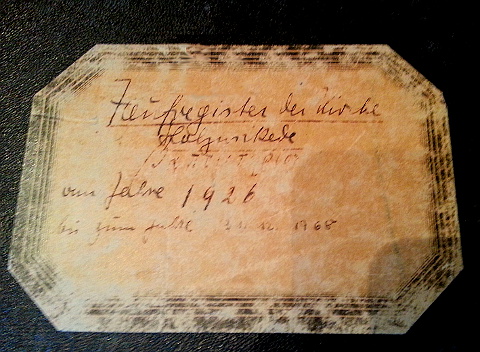 Taufregister der Kirche
Holzwickede
vom Jahre 1926
bis zum Jahre 31.12.1968